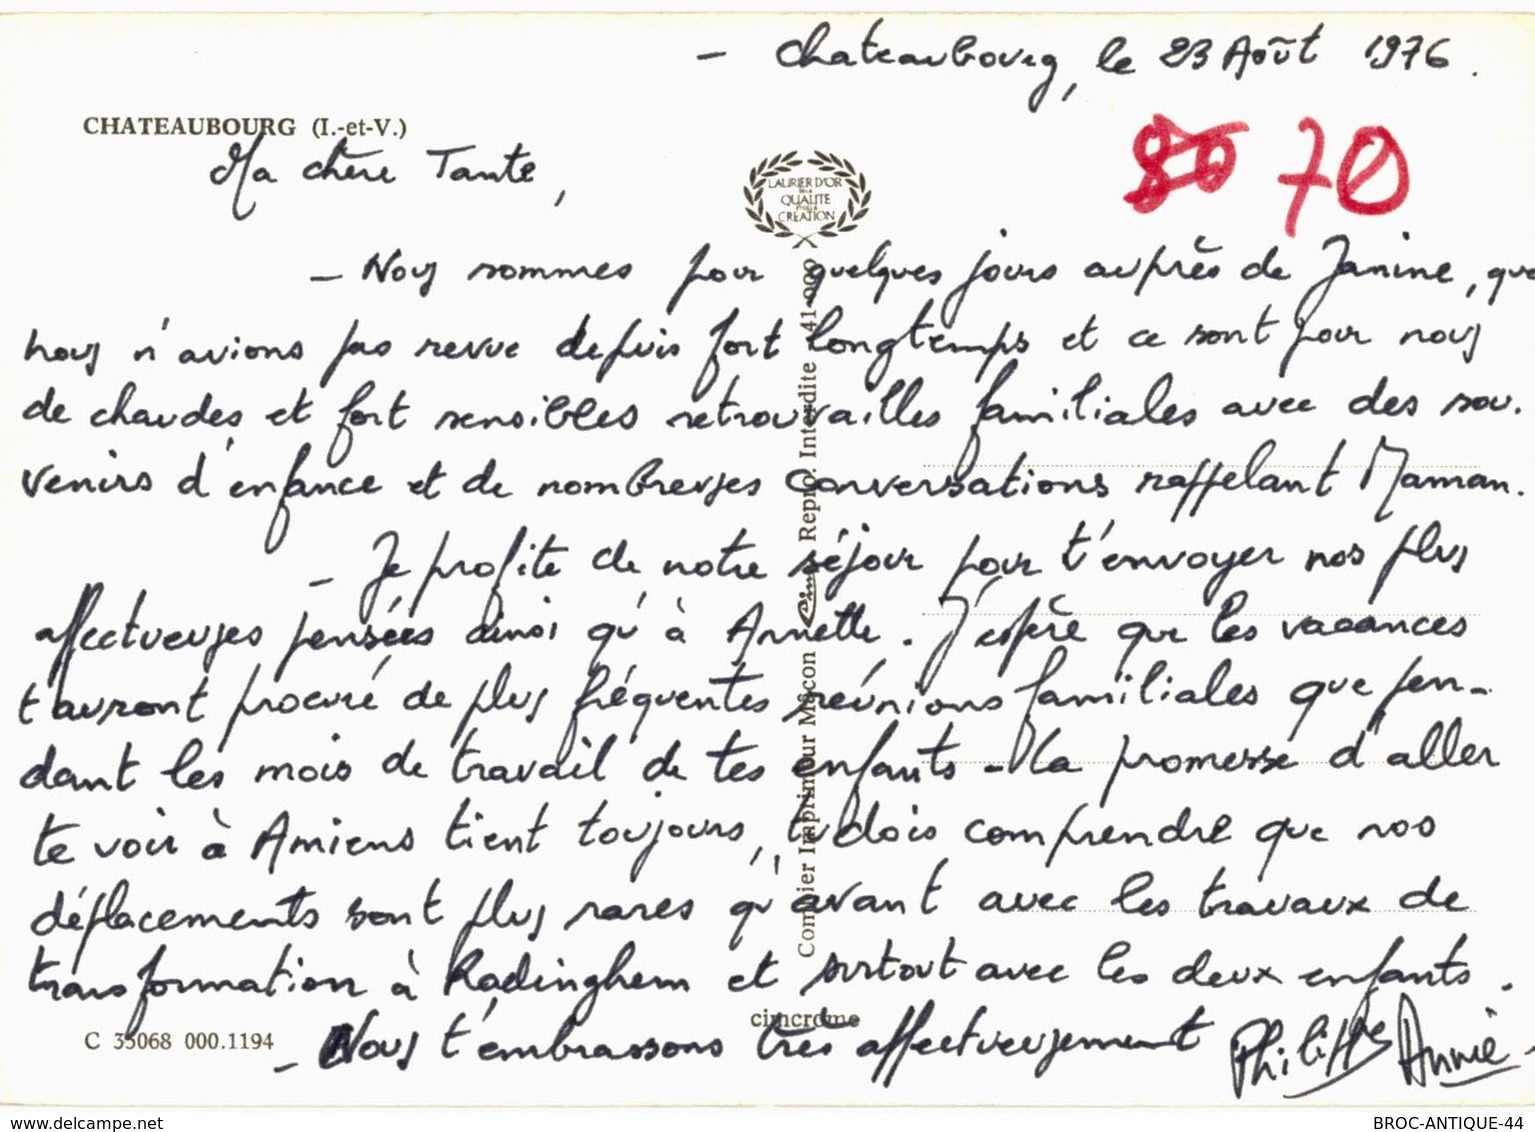 - Chateaubourg, le 23 Août 1976.
CHATEAUBOURG (I.-et-V.)
80 70
Ma chère Tante,
LAURIER D'OR
DE LA
QUALITE
ET DE LA
CREATION
- Nous sommes pour quelques jours auprès de Janine, que
nous n'avions pas revue depuis fort longtemps et ce sont pour nous
de chaudes et fort sensibles retrouvailles familiales avec des sou-
venirs d'enfance et de nombreuses conversations rappelant Maman.
- Je profite de notre séjour pour t'envoyer nos plus
affectueuses pensées ainsi qu'à Annette. J'espère que les vacances
t'auront procuré de plus fréquentes réunions familiales que pen-
dant les mois de travail de tes enfants - La promesse d'aller
te voir à Amiens tient toujours, tu dois comprendre que nos
déplacements sont plus rares qu'avant avec les travaux de
transformation à Radinghem et surtout avec les deux enfants.
- Nous t'embrassons très affectueusement Philippe Annie -
Combier Imprimeur Mâcon Cim Repro. Interdite 41-000
cimcrome
C 35068 000.1194
www.delcampe.net
BROC-ANTIQUE-44